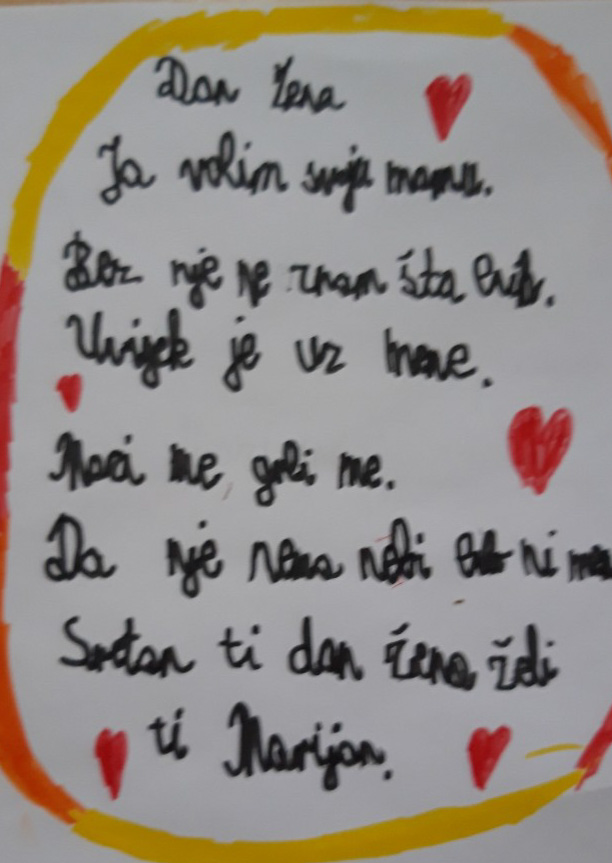 Dan žena
Ja volim svoju mamu.
Bez nje ne znam šta bih.
Uvijek je uz mene.
Mazi me, grli me.
Da nje nema nebi ni
Sretan ti dan žena želi
ti Marijan.